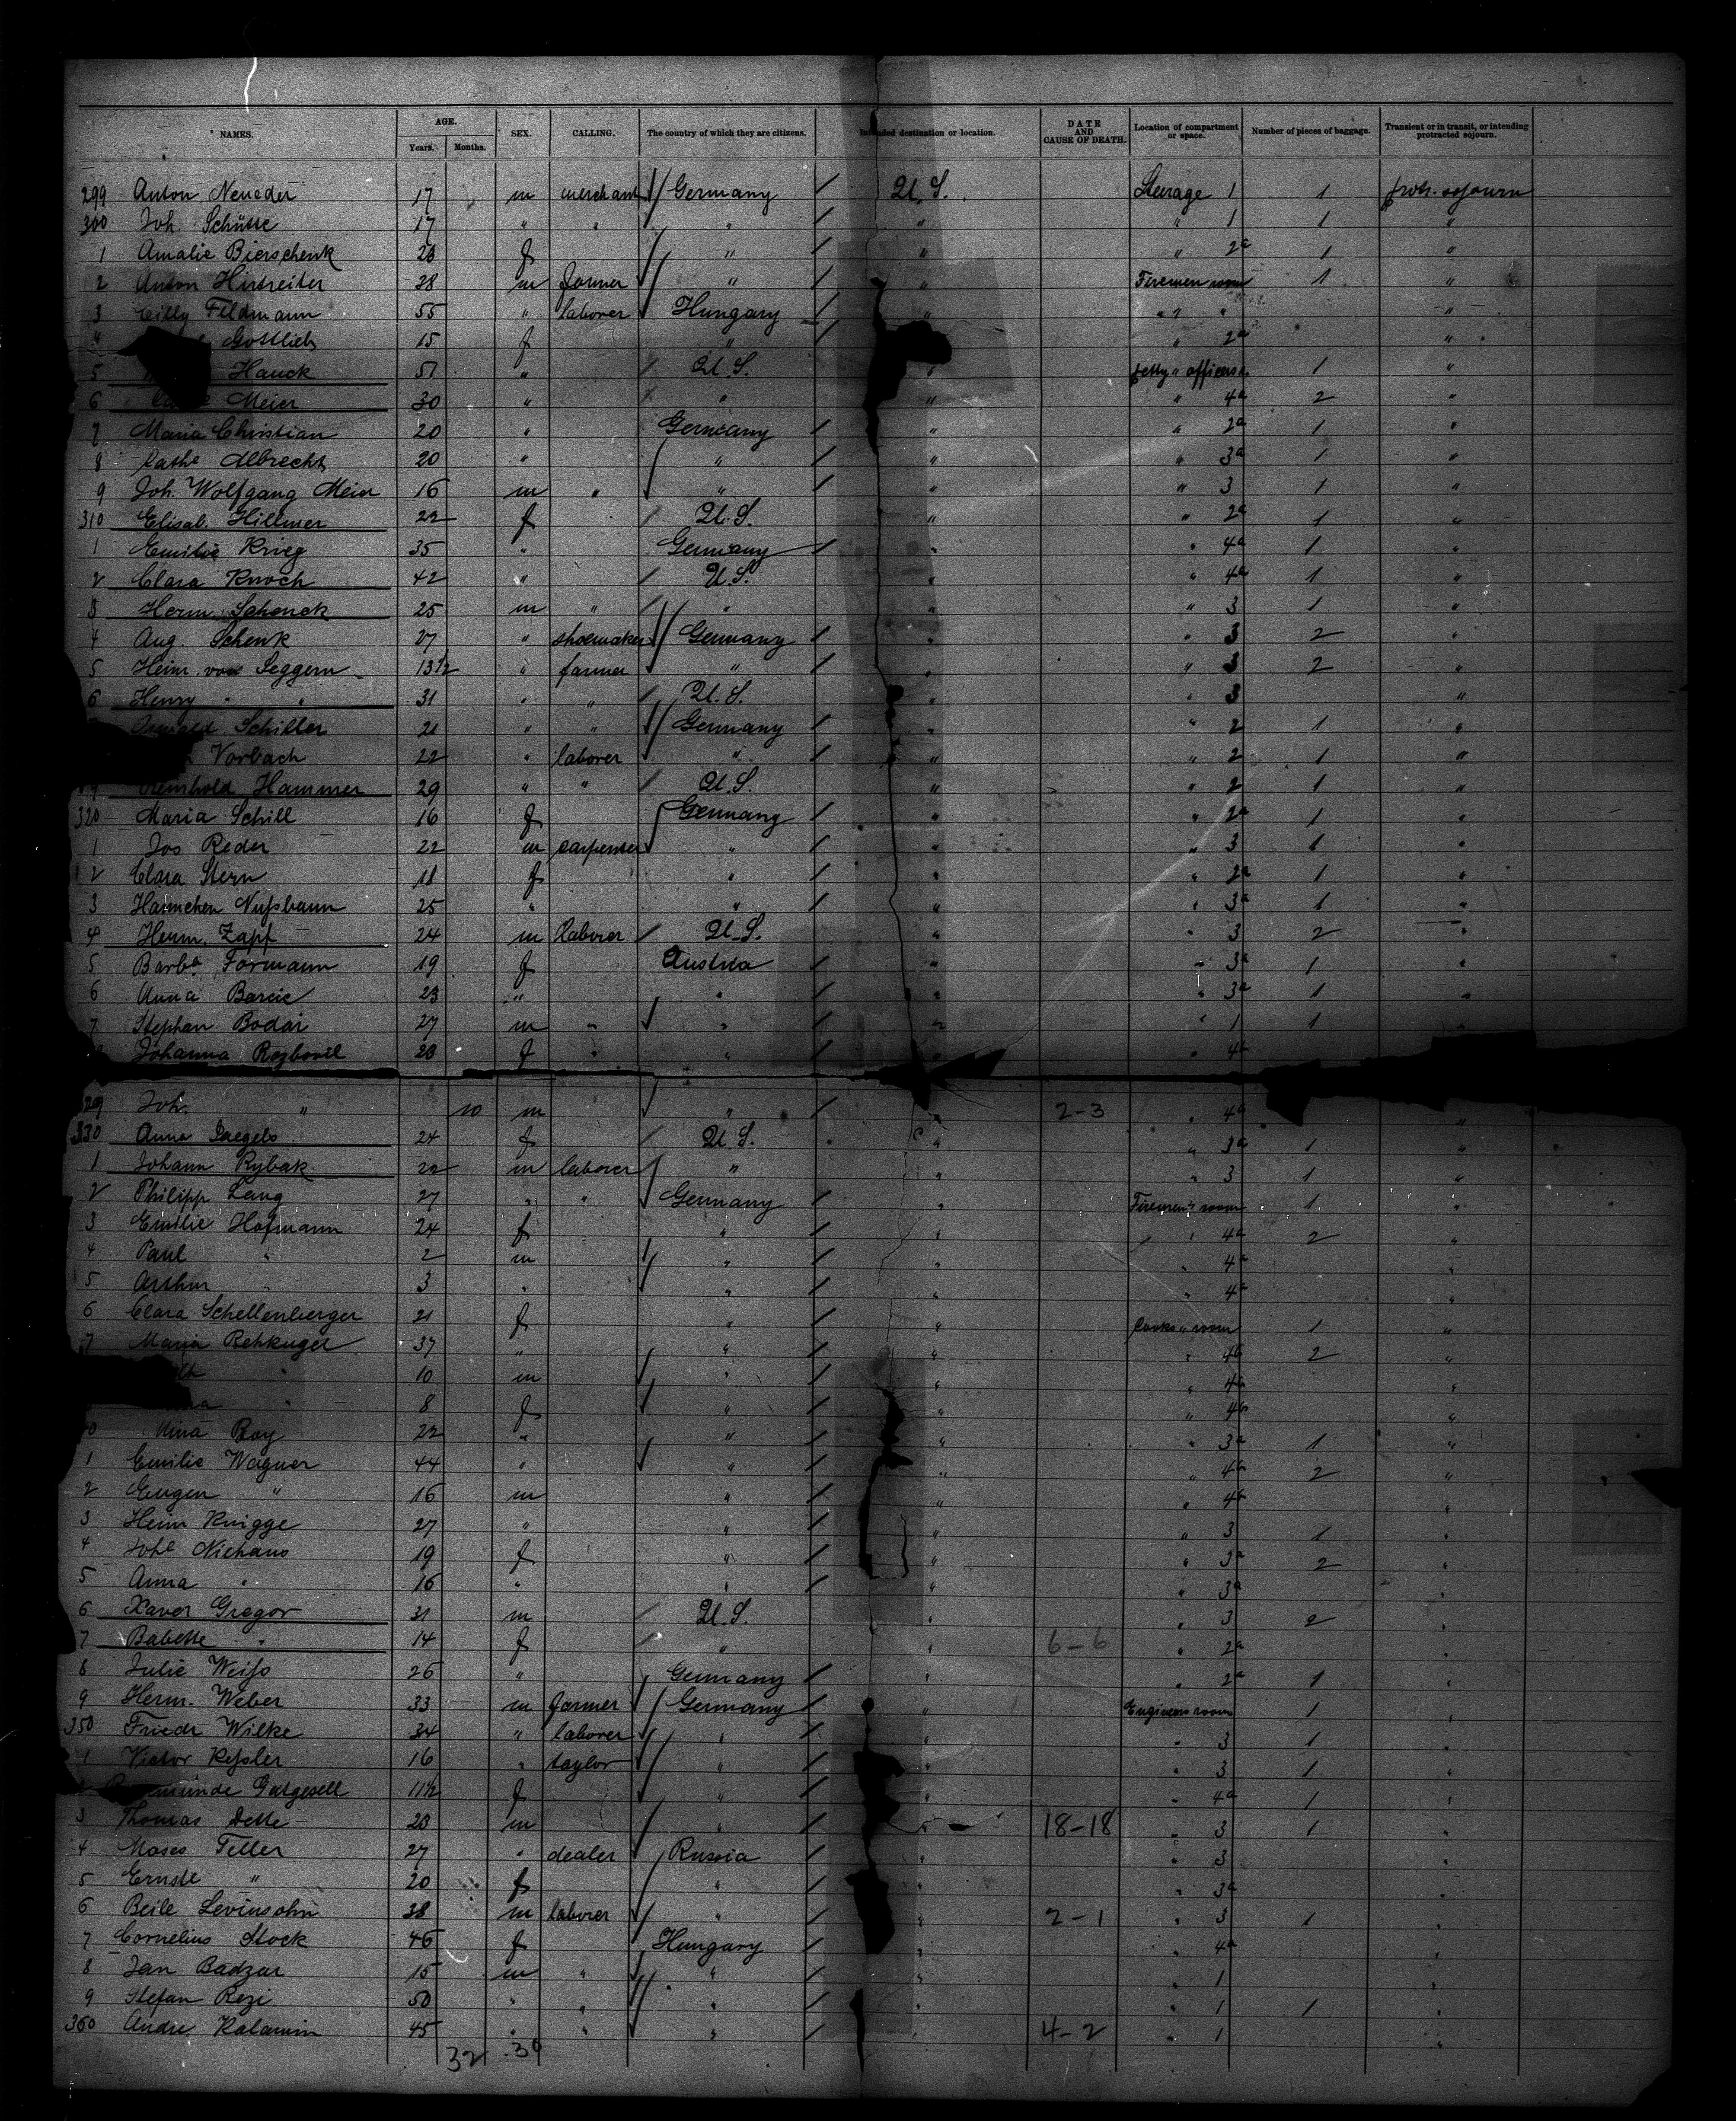 NAMES. AGE. Years. Months. SEX. CALLING. The country of which they are citizens. Intended destination or location. DATE AND CAUSE OF DEATH. Location of compartment or space. Number of pieces of baggage. Transient or in transit, or intending protracted sojourn.
299 Anton Neueder 17 m merchant Germany U.S. Steerage 1 1 protr. sojourn
300 Joh. Schütte 17 " " " " " 1 1 "
1 Amalie Bierschenk 23 f " " " 2a 1 "
2 Anton Hirtreiter 38 m farmer " " Firemen room 1 "
3 Cilly Feldmann 55 " laborer Hungary " " " "
4 Gottlieb 15 f " " 2a "
5 Hauck 51 " U.S. " petty officers 1 "
6 Meier 30 " " " " 4a 2 "
7 Maria Christian 20 " Germany " " 2a 1 "
8 Cathe Albrecht 20 " " " " 3a 1 "
9 Joh. Wolfgang Meier 16 m " " " " 3 1 "
310 Elisab. Hillmer 22 f U.S. " " 2a 1 "
1 Emilie Krieg 35 " Germany " " 4a 1 "
2 Clara Knoch 42 " U.S. " " 4a 1 "
3 Herm. Schenck 25 m " " " " 3 1 "
4 Aug. Schenk 27 " shoemaker Germany " " 3 2 "
5 Heinr. von Seggern 13½ " farmer " " " 3 2 "
6 Henry " " 31 " " U.S. " " 3 "
Oswald Schiller 21 " " Germany " " 2 1 "
Vorbach 22 " laborer " " " 2 1 "
19 Reinhold Hammer 29 " " U.S. " " 2 1 "
320 Maria Schill 16 f Germany " " 2a 1 "
1 Jos Reder 22 m carpenter " " " 3 1 "
2 Clara Stern 18 f " " " 2a 1 "
3 Hannchen Nußbaum 25 " " " " 3a 1 "
4 Herm. Zapf 24 m laborer U.S. " " 3 2 "
5 Barba Formann 19 f Austria " " 3a 1 "
6 Anna Barcic 23 " " " " 3a 1 "
7 Stephan Bodar 27 m " " " " 1 1 "
Johanna Rozbovil 23 f " " " " 4a
329 Joh. " 10 m " " 2-3 " 4a "
330 Anna Paegels 24 f U.S. " " 3a 1 "
1 Johann Rybak 22 m laborer " " " 3 1 "
2 Philipp Lang 27 " " Germany " Firemens room 1 "
3 Emilie Hofmann 24 f " " " 4a 2 "
4 Paul " 2 m " " " 4a "
5 Arthur " 3 " " " " 4a "
6 Clara Schellenberger 21 f " " Cooks room 1 "
7 Maria Rehkugel 37 " " " " 4b 2 "
" 10 m " " " 4b "
" 8 f " " " 4b "
Mina Bay 22 " " " " 3a 1 "
1 Emilie Wagner 44 " " " " 4b 2 "
2 Eugen " 16 m " " " 4b "
3 Heinr Knigge 27 " " " " 3 1 "
4 Johe Niehaus 19 f " " " 3a 2 "
5 Anna " 16 " " " " 3a "
6 Xaver Gregor 31 m U.S. " " 3 2 "
7 Babette " 14 f " " 6-6 " 2a "
8 Julie Weiß 26 " Germany " " 2a 1 "
9 Herm. Weber 33 m farmer Germany " Engineers room 1 "
350 Friedr Wilke 34 " laborer " " " 3 1 "
1 Victor Keßler 16 " taylor " " " 3 1 "
Gutgesell 11½ f " " " 4a 1 "
3 Thomas Dette 23 m " " 18-18 " 3 1 "
4 Moses Teller 27 " dealer Russia " " 3 "
5 Ernste " 20 f " " " 3a "
6 Beile Levinsohn 38 m laborer " " 2-1 " 3 1 "
7 Cornelius Stock 46 f Hungary " " 4a "
8 Jan Badzar 15 m " " " " 1 "
9 Stefan Rezi 50 " " " " " 1 1 "
360 Andre Kalamin 45 " " " " 4-2 " 1 "
32 30